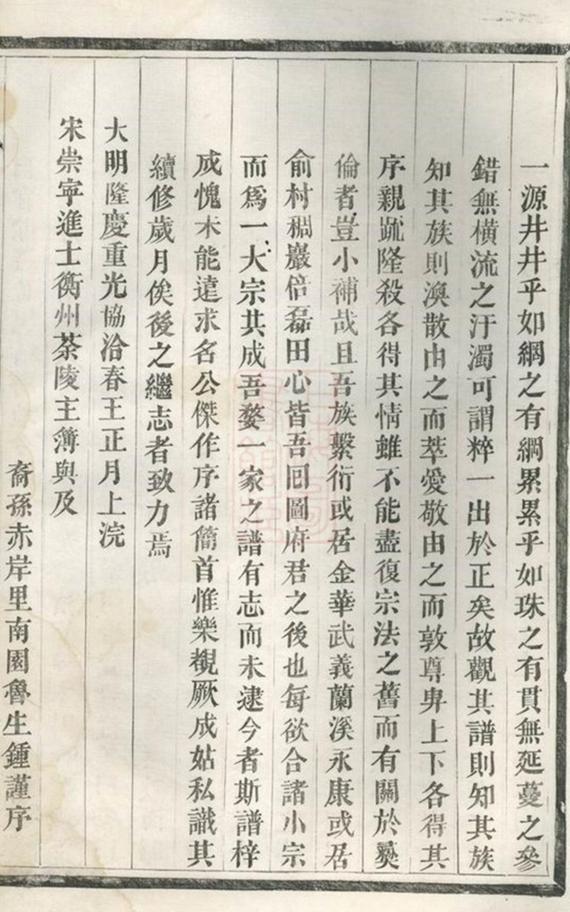 一源井井乎如綱之有綱累累乎如珠之有貫無延蔓之參
錯無橫流之汙濁可謂粹一出於正矣故觀其譜則知其族
知其族則渙散由之而萃愛敬由之而敦尊卑上下各得其
序親疏隆殺各得其情雖不能盡復宗法之舊而有關於彝
倫者豈小補哉且吾族繫衍或居金華武義蘭溪永康或居
俞村稠巖倍磊田心皆吾囘圖府君之後也每欲合諸小宗
而爲一大宗其成吾婺一家之譜有志而未逮今者斯譜梓
成愧未能遠求名公傑作序諸簡首惟樂覩厥成姑私識其
續修歲月俟後之繼志者致力焉
大明隆慶重光協洽春王正月上浣
宋崇寧進士衡州茶陵主簿與及
裔孫赤岸里南園魯生鍾謹序